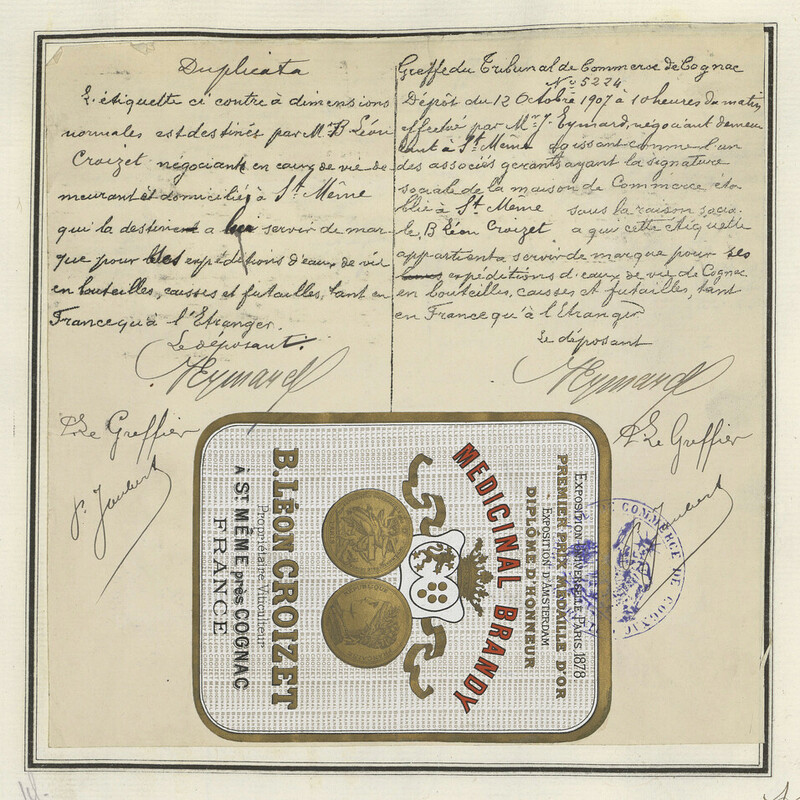 Duplicata
L'étiquette ci contre à dimensions
normales est destinés par Mr B Léon
Croizet négociant en eaux de vie de-
meurant et domicilié à St Même
qui la destinent a lui servir de mar-
que pour les expéditions d'eaux de vie
en bouteilles, caisses et futailles, tant en
France qu'à l'Etranger.
Le déposant.
JEymard
P. Le Greffier
P. Jaubert
Greffe du Tribunal de Commerse de Cognac
No 5224
Dépôt du 12 Octobre 1907 à 10 heures du matin
effectué par Mr J. Eymard, négociant demeu
rant à St Même agissant comme l'un
des associés gerants ayant la signature
sociale de la maison de Commerce éta
blie à St Même sous la raison socia-
le, B Léon Croizet a qui cette étiquette
appartient a servir de marque pour ses
expéditions d'eaux de vie de Cognac
en bouteilles, caisses et futailles, tant
en France qu'à l'Etranger
Le déposant
JEymard
P. Le Greffier
Jaubert
COMMERCE DE COGNAC
EXPOSITION UNIVERSELLE PARIS 1878
PREMIER PRIX MÉDAILLE D'OR
EXPOSITION D'AMSTERDAM
DIPLÔME D'HONNEUR
MEDICINAL BRANDY
REPUBLIQUE
B. LÉON CROIZET
Propriétaire Viticulteur
À ST MÊME près COGNAC
FRANCE